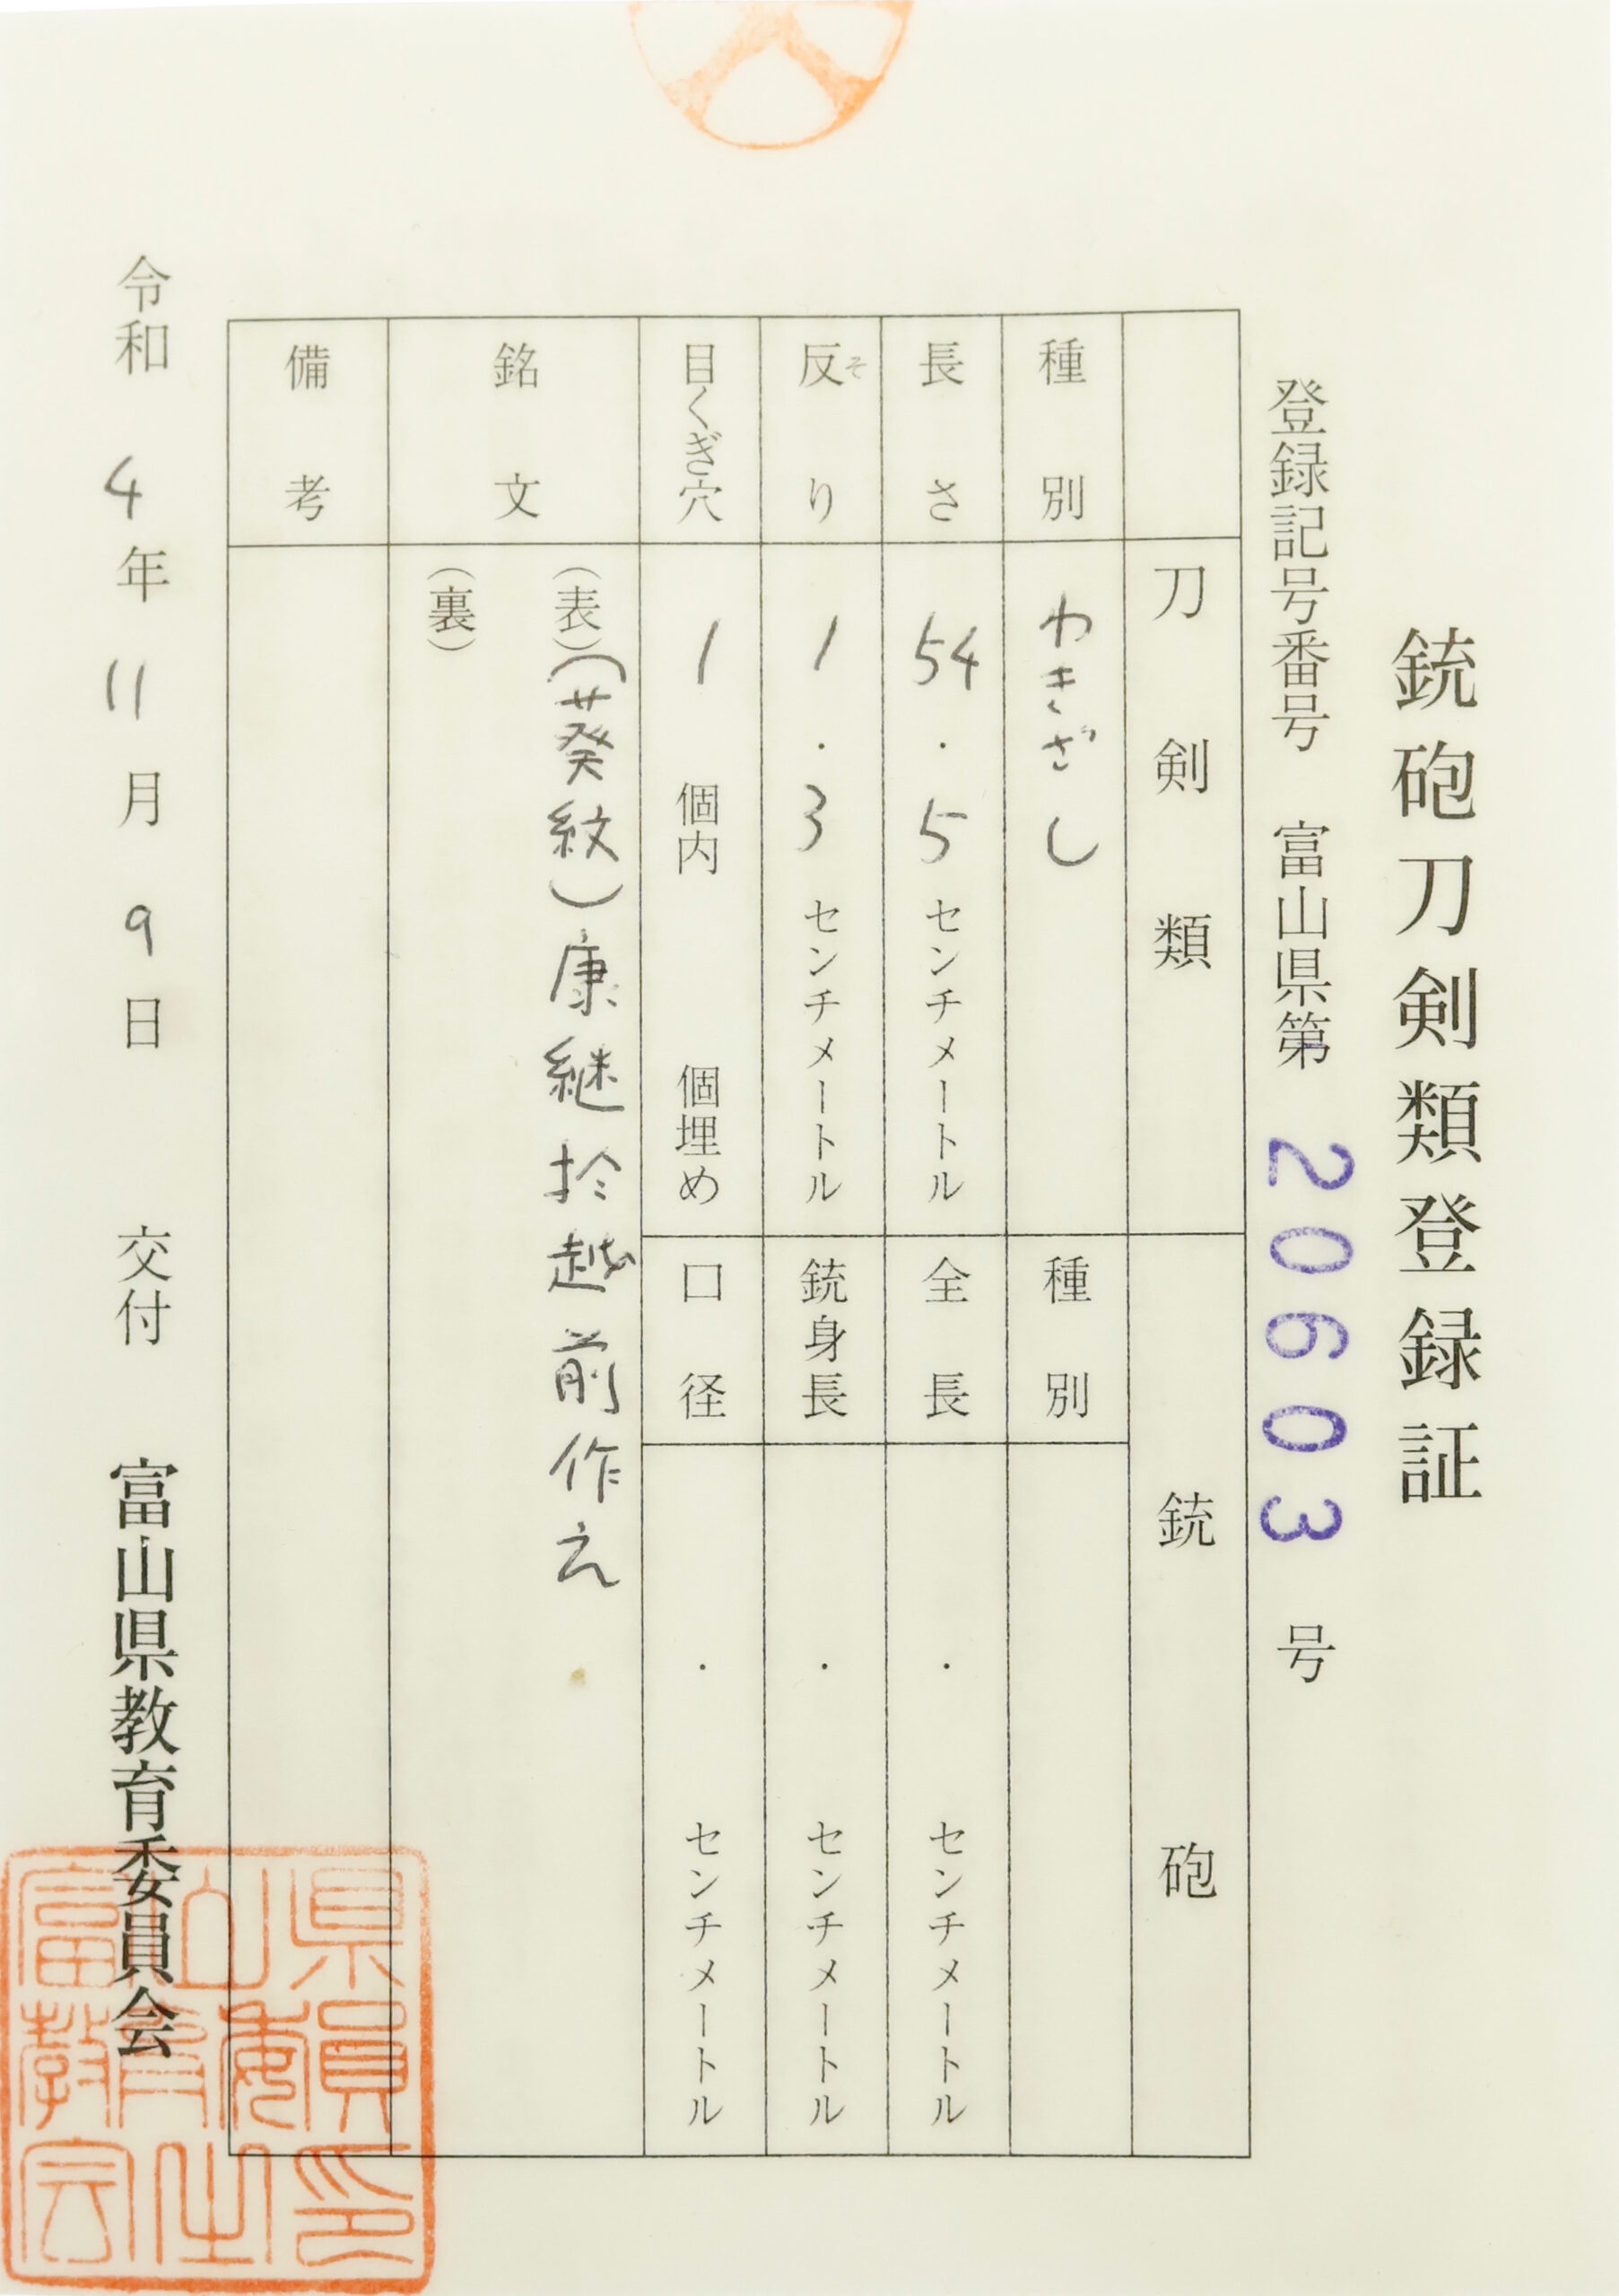 銃砲刀剣類登録証
登録記号番号 富山県第 20603 号
刀剣類 銃砲
種別 わきざし 種別
長さ 54.5センチメートル 全長 ・ センチメートル
反り 1.3センチメートル 銃身長 ・ センチメートル
そ
目くぎ穴 1 個内 個埋め 口径 ・ センチメートル
銘文 (表)(葵紋)康継於越前作之
(裏)
備考
令和 4年 11月 9日 交付 富山県教育委員会
富山県
教育委員
会之印